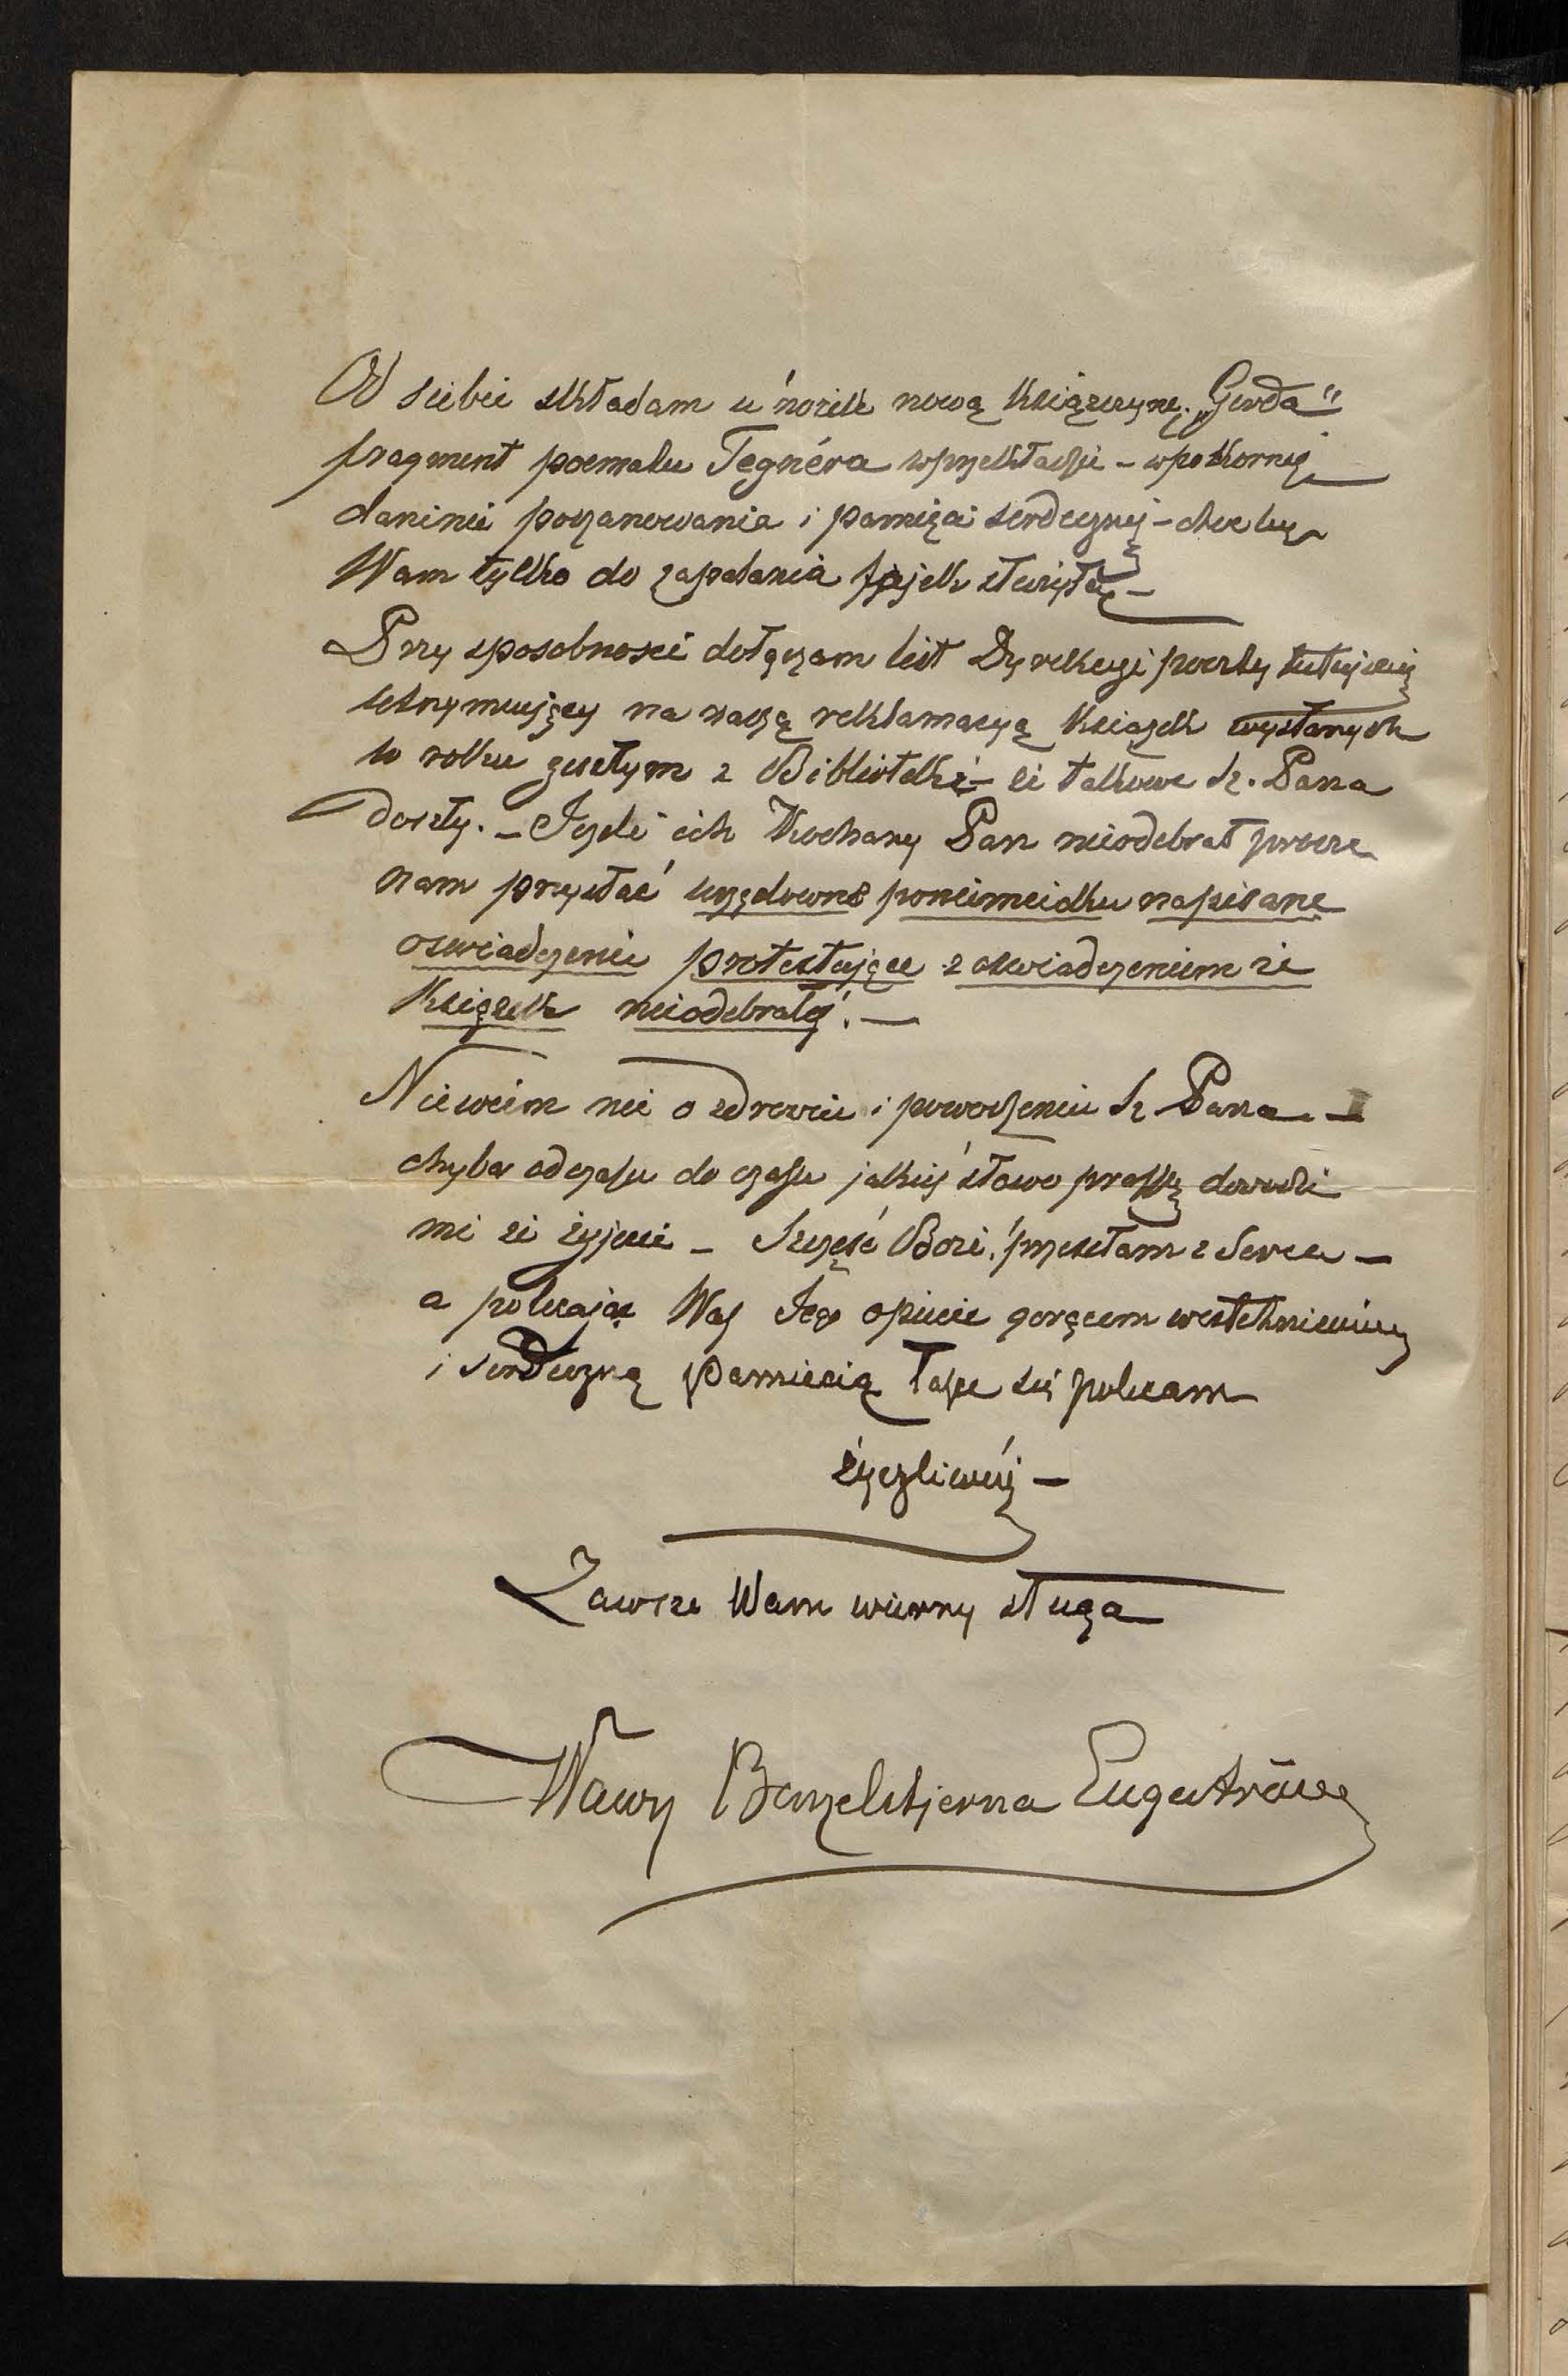 Od siebie składam u nóżek nową książeczynę „Gerda"
fragment poematu Tegnéra w przekładzie – w pokornéj
daninie poszanowania i pamięci serdecznéj – choćby
Wam tylko do zapalania fajek służyła –
Przy sposobności dołączam list Dyrekcyi poczty tutejszéj
utrzymujący na naszą reklamacyą książek wysłanych
w roku zeszłym z Biblioteki – że takowe Sz. Pana
doszły. – Jeżeli ich Kochany Pan nieodebrał proszę
nam przysłać urzędowne poniemiecku napisane
oświadczenie protestujące z oświadczeniem że
książek nieodebrałeś. –
Niewiem nic o zdrowiu i powodzeniu Sz. Pana –
chyba od czasu do czasu jakieś słowo prasy dowodzi
mi że żyjecie – Szczęść Boże! przesełam z serca –
a polecając Was Jego opiece gorącem westchnieniem
i serdeczną pamięcią łasce się polecam
życzliwéj –
Zawsze Wam wierny sługa
Wawrz Benzelstjerna Engeström